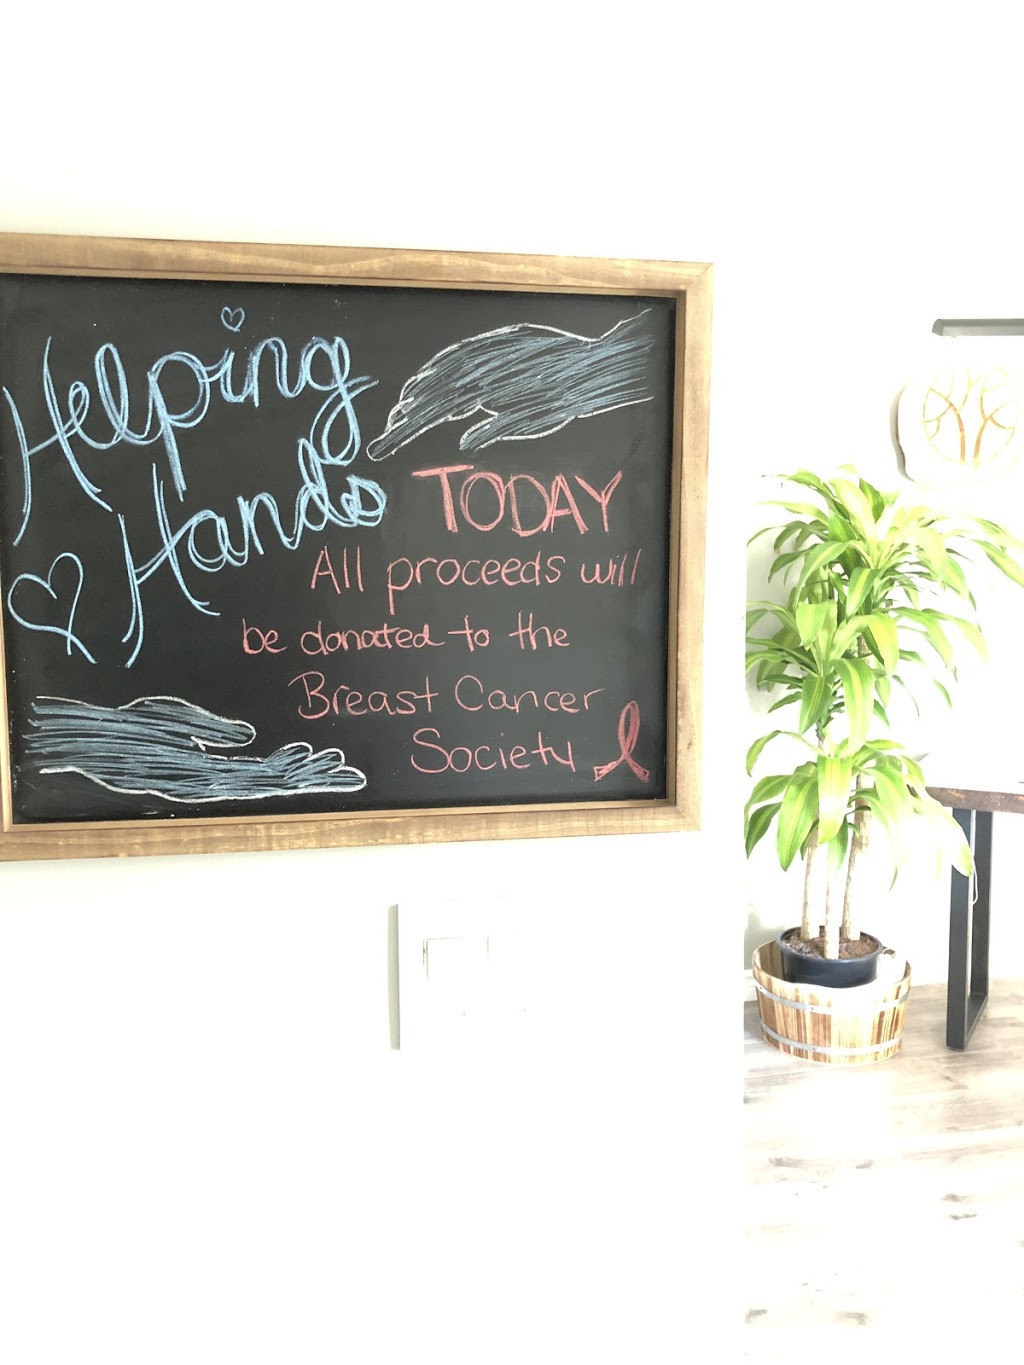 Helping
Hands
TODAY
All proceeds will
be donated to the
Breast Cancer
Society